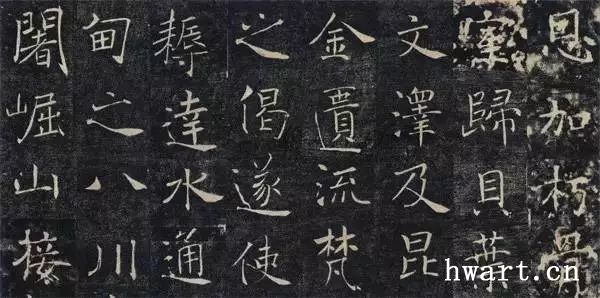 恩加朽骨
室歸貝葉
文澤及昆
金匱流梵
之偈遂使
耨達水通
甸之八川
闍崛山接
hwart.cn